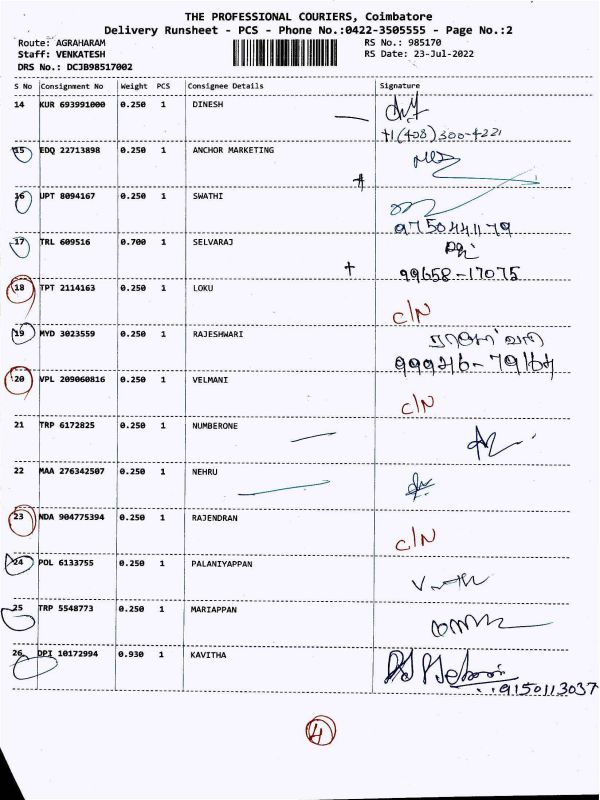 THE PROFESSIONAL COURIERS, Coimbatore
Delivery Runsheet - PCS - Phone No.:0422-3505555 - Page No.:2
Route: AGRAHARAM RS No.: 985170
Staff: VENKATESH RS Date: 23-Jul-2022
DRS No.: DCJB98517002
S No Consignment No Weight PCS Consignee Details Signature
14 KUR 693991000 0.250 1 DINESH
+1(408)300-4221
15 EDQ 22713898 0.250 1 ANCHOR MARKETING
16 UPT 8094167 0.250 1 SWATHI
9750441179
17 TRL 609516 0.700 1 SELVARAJ
99658-17075
18 TPT 2114163 0.250 1 LOKU
C/N
19 MYD 3023559 0.250 1 RAJESHWARI
20 VPL 209060816 0.250 1 VELMANI
C/N
21 TRP 6172825 0.250 1 NUMBERONE
22 MAA 276342507 0.250 1 NEHRU
23 NDA 904775394 0.250 1 RAJENDRAN
C/N
24 POL 6133755 0.250 1 PALANIYAPPAN
25 TRP 5548773 0.250 1 MARIAPPAN
26 DPI 10172994 0.930 1 KAVITHA
9150113037
4